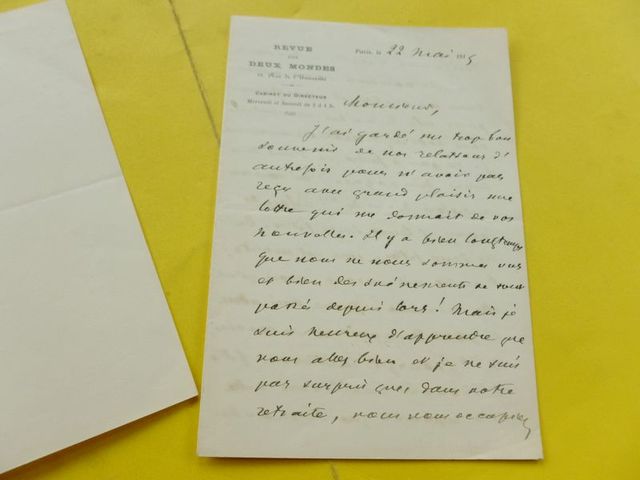 REVUE
DES
DEUX MONDES
15, Rue de l'Université
CABINET DU DIRECTEUR
Mercredi et Samedi de 2 à 4 h.
Paris, le 22 mai 19
Monsieur,
J'ai gardé un trop bon
souvenir de nos relations d'
autrefois pour n'avoir pas
reçu avec grand plaisir une
lettre qui me donnait de vos
nouvelles. Il y a bien longtemps
que nous ne nous sommes vus
et bien des événements se sont
passé depuis lors! Mais je
suis heureux d'apprendre que
vous allez bien et je ne suis
pas surpris que, dans votre
retraite, vous vous occupiez